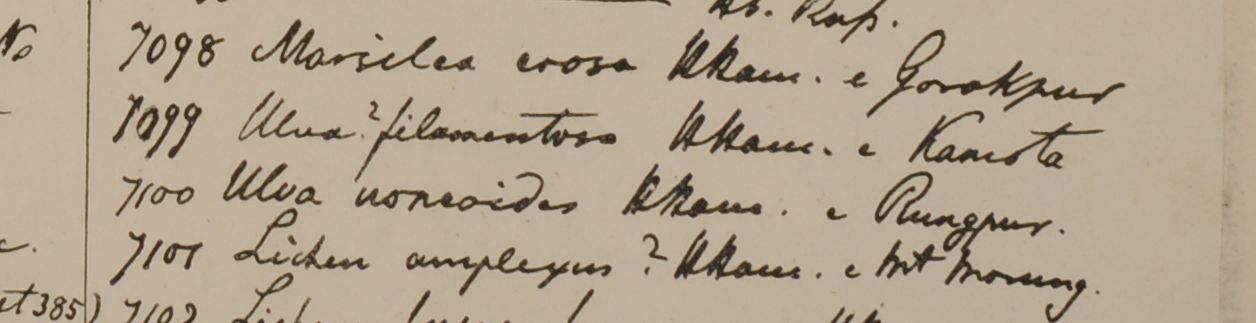 Hb. Rop.
No 7098 Marsilea erosa HHam. e Gorakpur
7099 Ulva? filamentosa HHam. e Kamota
7100 Ulva noneoides HHam. e Rungpur.
7101 Lichen amplexus? HHam. e Mt Morung.
st 385) 7102 Lichen